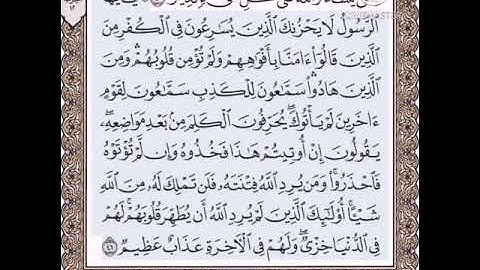 الرَّسُولُ لَا يَحْزُنكَ الَّذِينَ يُسَارِعُونَ فِي الْكُفْرِ مِنَ
الَّذِينَ قَالُوا ءَامَنَّا بِأَفْوَاهِهِمْ وَلَمْ تُؤْمِن قُلُوبُهُمْ وَمِنَ
الَّذِينَ هَادُوا سَمَّاعُونَ لِلْكَذِبِ سَمَّاعُونَ لِقَوْمٍ
ءَاخَرِينَ لَمْ يَأْتُوكَ يُحَرِّفُونَ الْكَلِمَ مِن بَعْدِ مَوَاضِعِهِ
يَقُولُونَ إِنْ أُوتِيتُمْ هَٰذَا فَخُذُوهُ وَإِن لَّمْ تُؤْتَوْهُ
فَاحْذَرُوا وَمَن يُرِدِ اللَّهُ فِتْنَتَهُ فَلَن تَمْلِكَ لَهُ مِنَ اللَّهِ
شَيْئًا أُولَٰئِكَ الَّذِينَ لَمْ يُرِدِ اللَّهُ أَن يُطَهِّرَ قُلُوبَهُمْ لَهُمْ
فِي الدُّنْيَا خِزْيٌ وَلَهُمْ فِي الْآخِرَةِ عَذَابٌ عَظِيمٌ ٤١